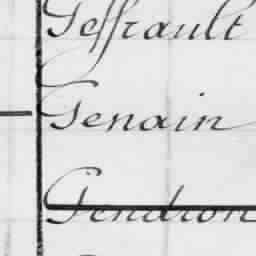 Geffrault
Genain
Gendron